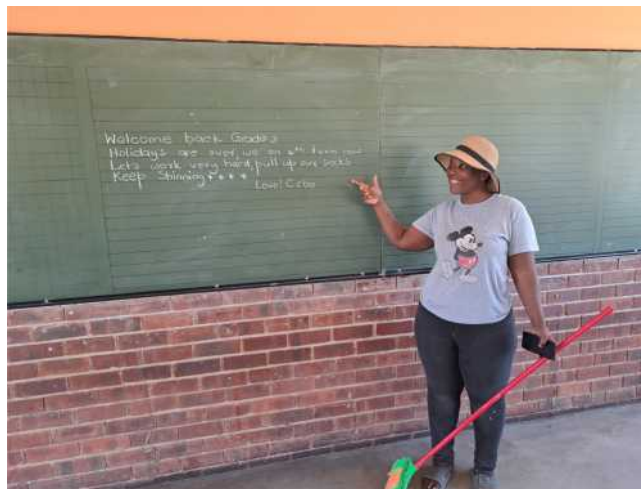 Welcome back Grade 3
Holidays are over, we on 4th term now
Lets work very hard, pull up our socks
Keep Shinning * * * *
Love! Cebo